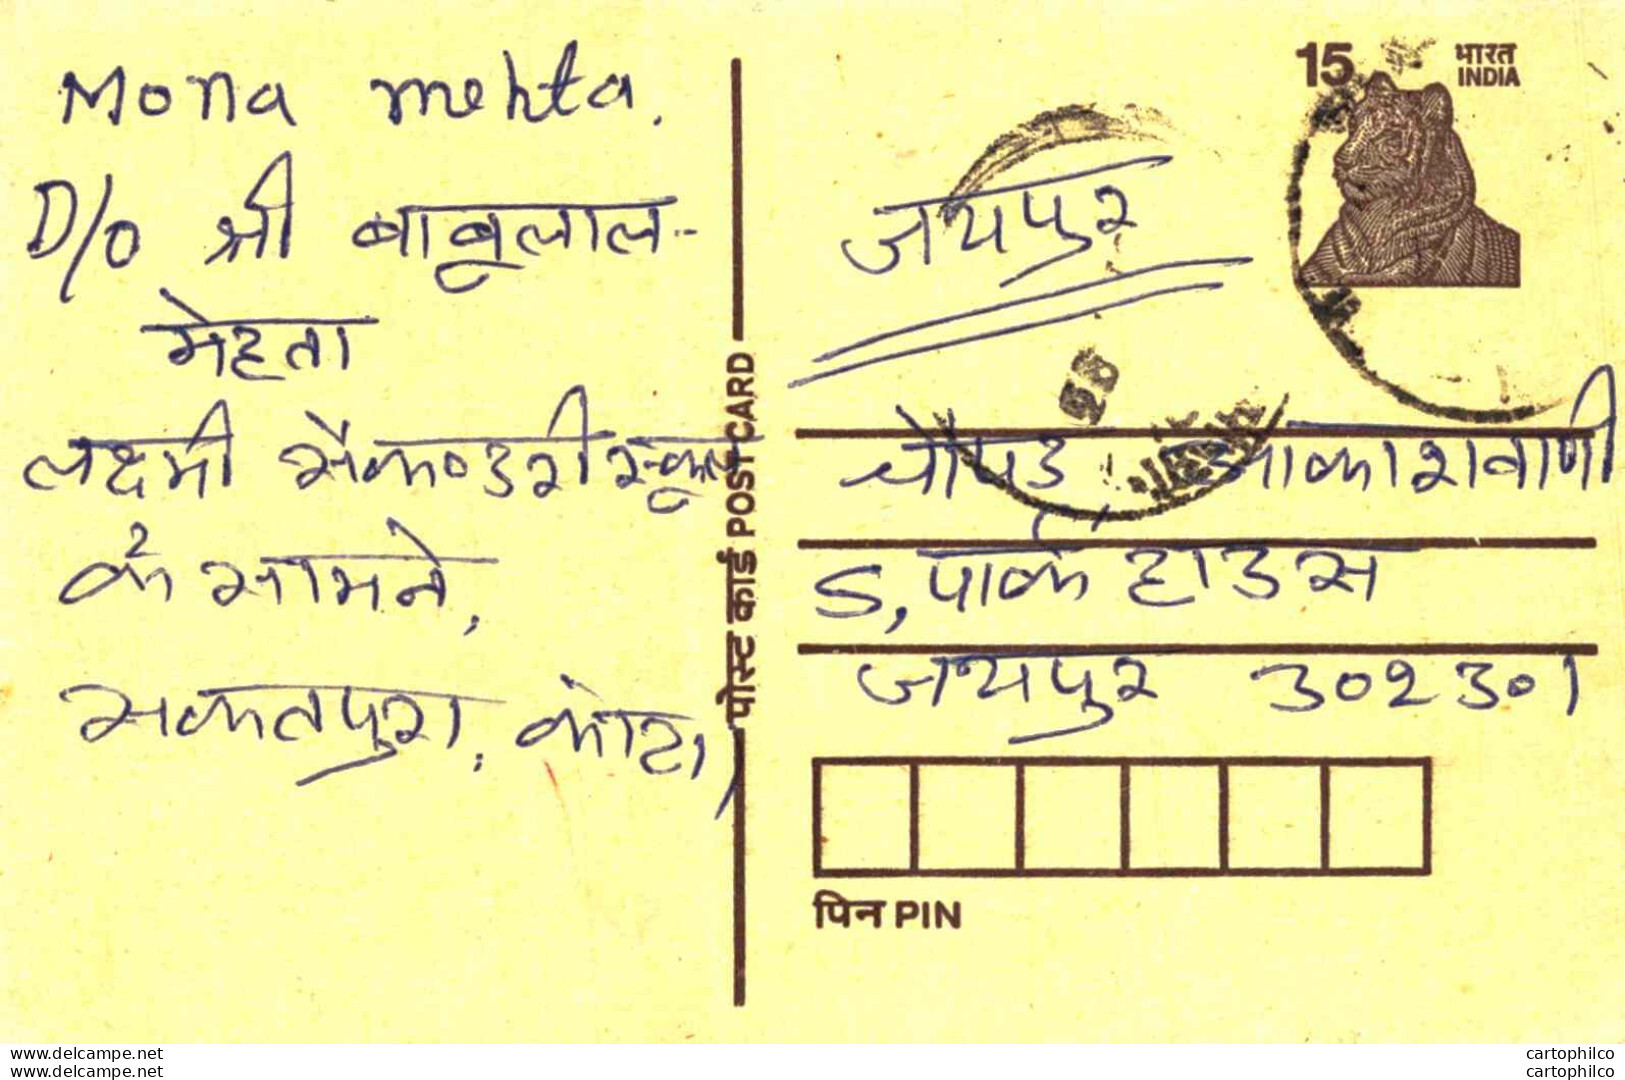 Mona mehta.
D/o श्री बाबूलाल-
मेहता
लक्ष्मी सैकण्डरी स्कूल
के सामने,
सकतपुरा, कोटा,
पोस्ट कार्ड POST CARD
15
भारत
INDIA
जयपुर
चौपड, आकाशवाणी
5, पार्क हाउस
जयपुर 302301
पिन PIN
www.delcampe.net
cartophilco
www.delcampe.net
cartophilco